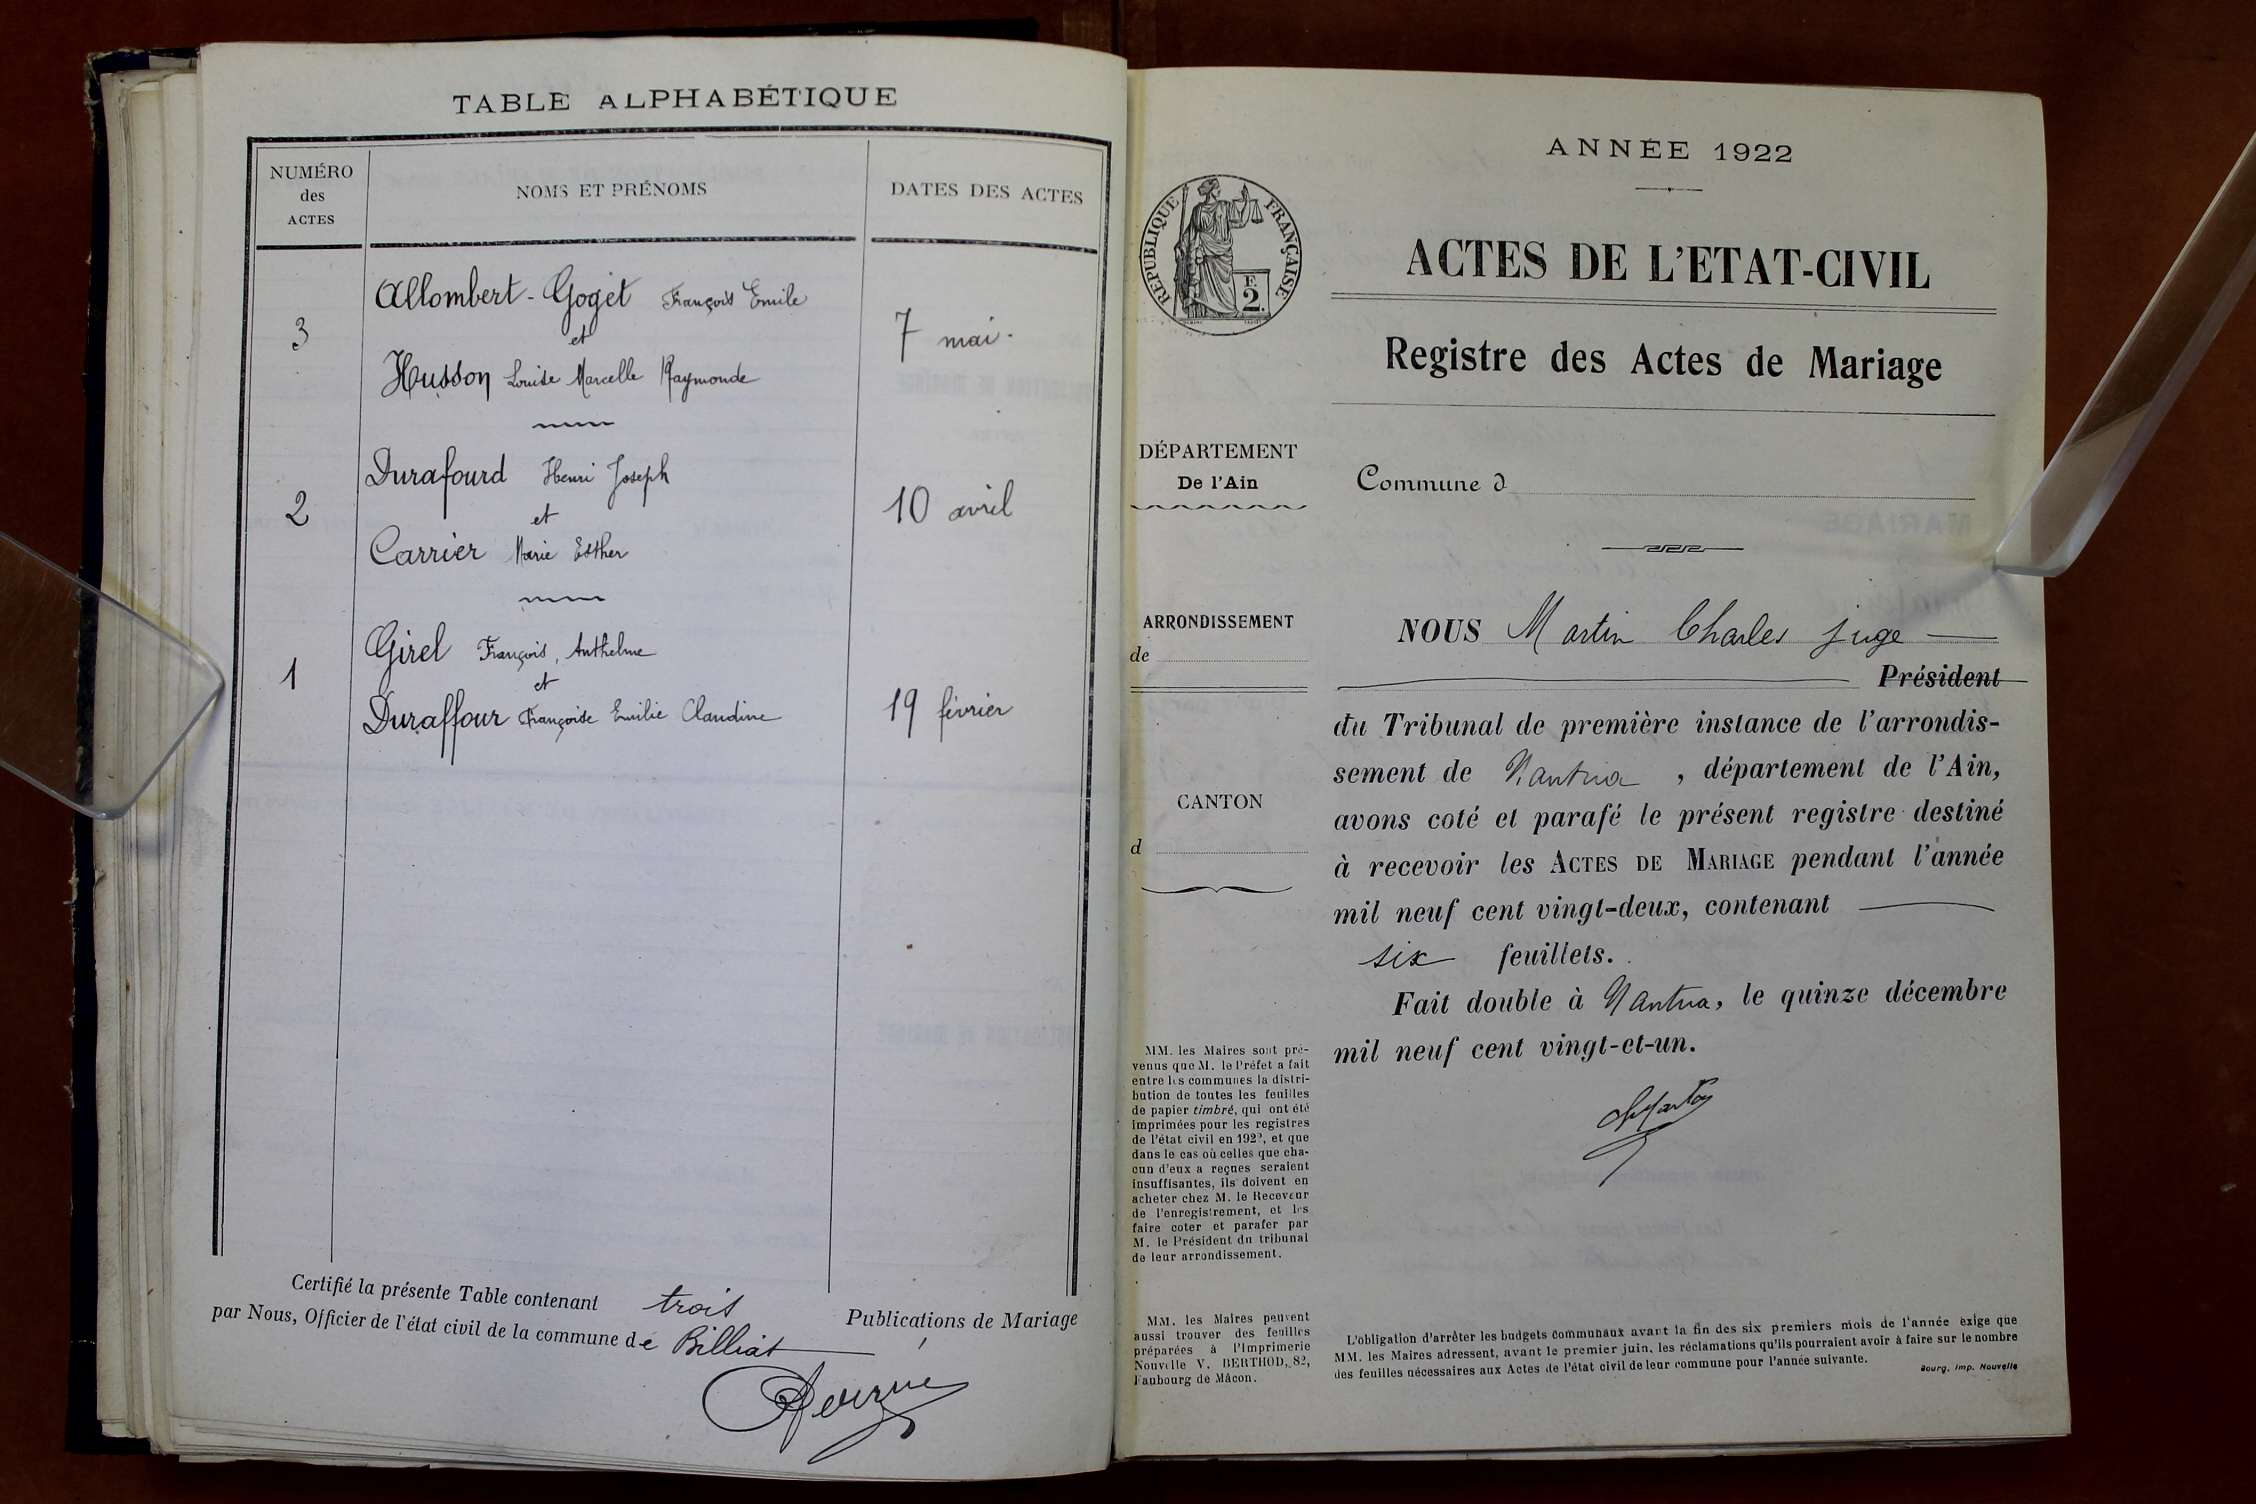 TABLE ALPHABÉTIQUE
NUMÉRO
des
ACTES
NOMS ET PRÉNOMS
DATES DES ACTES
Allombert-Goget François Emile
3
et
7 mai.
Husson Louise Marcelle Raymonde
Durafourd Henri Joseph
2
et
10 avril
Carrier Marie Esther
Girel François, Anthelme
1
et
Duraffour Françoise Emilie Claudine
19 février
Certifié la présente Table contenant trois Publications de Mariage
par Nous, Officier de l'état civil de la commune de Billiat
ANNÉE 1922
RÉPUBLIQUE FRANÇAISE
F.
2.
ACTES DE L'ETAT-CIVIL
Registre des Actes de Mariage
DÉPARTEMENT
De l'Ain
Commune d
ARRONDISSEMENT
de
CANTON
d
NOUS Martin Charles juge
Président
du Tribunal de première instance de l'arrondis-
sement de Nantua, département de l'Ain,
avons coté et parafé le présent registre destiné
à recevoir les ACTES DE MARIAGE pendant l'année
mil neuf cent vingt-deux, contenant
six feuillets.
Fait double à Nantua, le quinze décembre
mil neuf cent vingt-et-un.
MM. les Maires sont pré-
venus que M. le Préfet a fait
entre les communes la distri-
bution de toutes les feuilles
de papier timbré, qui ont été
imprimées pour les registres
de l'état civil en 1922, et que
dans le cas où celles que cha-
cun d'eux a reçues seraient
insuffisantes, ils doivent en
acheter chez M. le Receveur
de l'enregistrement, et les
faire coter et parafer par
M. le Président du tribunal
de leur arrondissement.
MM. les Maires peuvent
aussi trouver des feuilles
préparées à l'Imprimerie
Nouvelle V. BERTHOD, 82,
Faubourg de Mâcon.
L'obligation d'arrêter les budgets communaux avant la fin des six premiers mois de l'année exige que
MM. les Maires adressent, avant le premier juin, les réclamations qu'ils pourraient avoir à faire sur le nombre
des feuilles nécessaires aux Actes de l'état civil de leur commune pour l'année suivante.
Bourg, Imp. Nouvelle